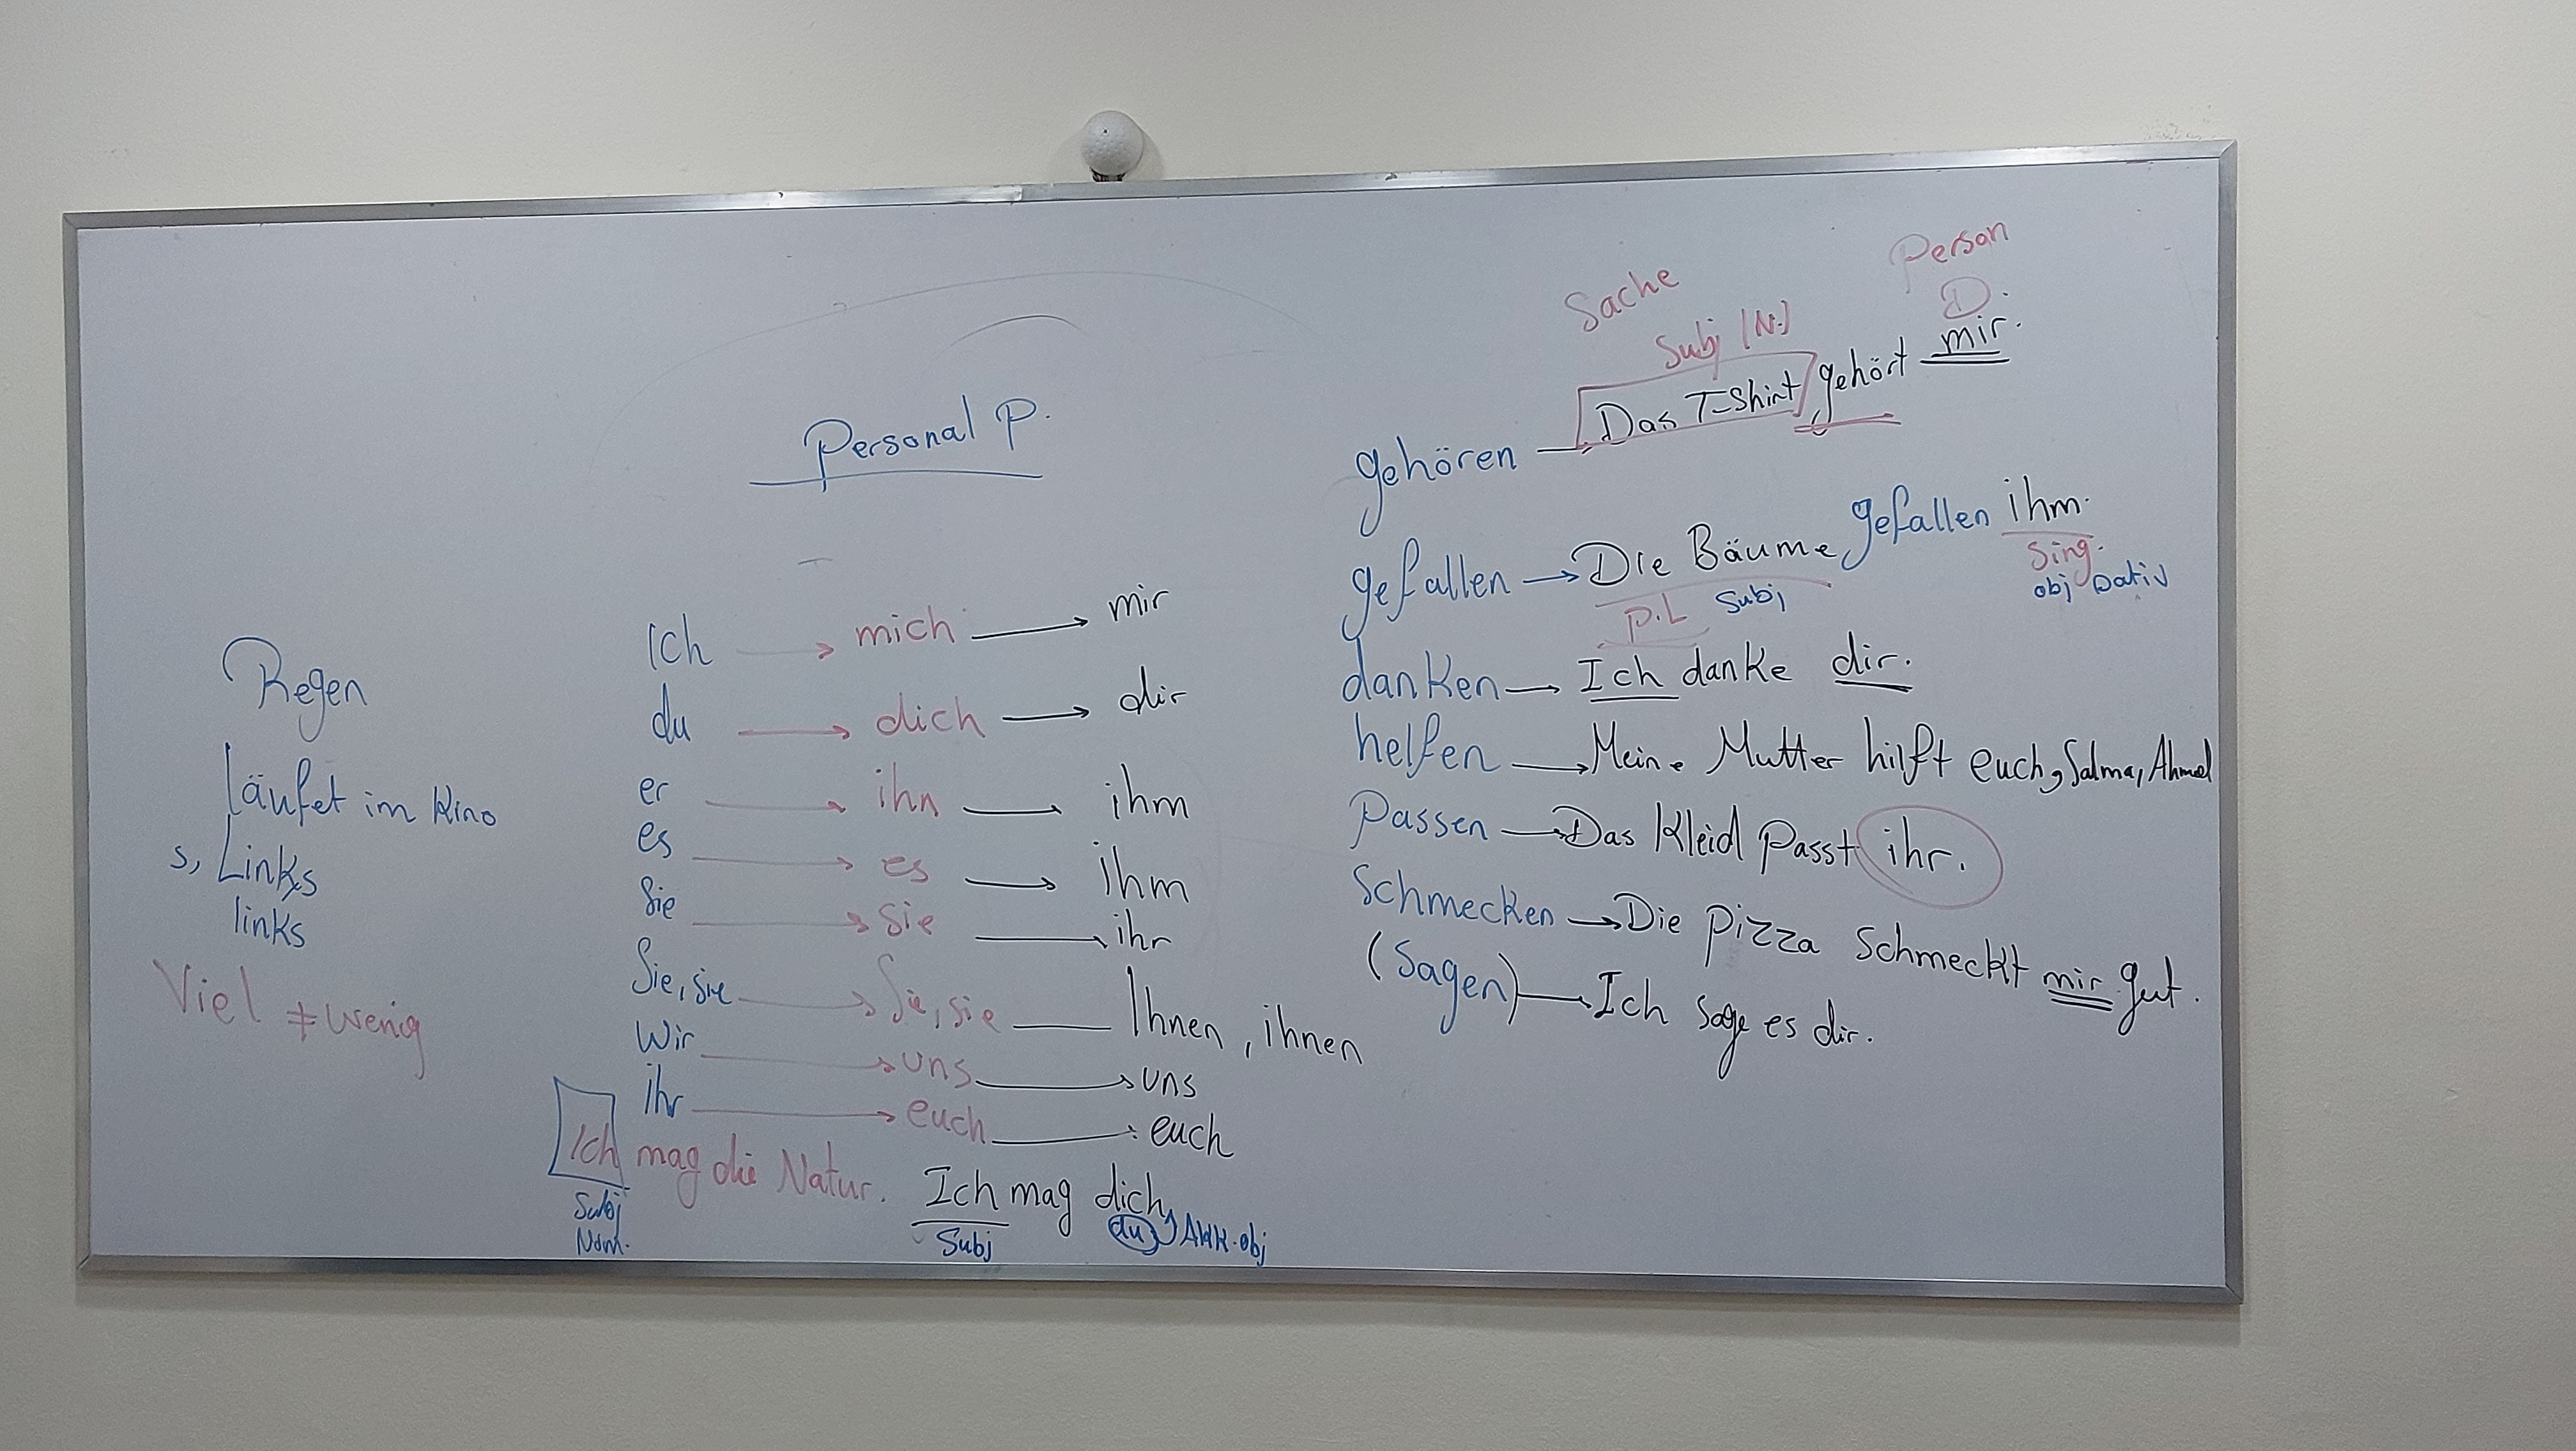 Regen
läufet im Kino
s, Links
links
Viel ≠ wenig
Personal P.
Ich → mich → mir
du → dich → dir
er → ihn → ihm
es → es → ihm
Sie → Sie → ihr
Sie, sie → Sie, sie — Ihnen, ihnen
Wir → uns → uns
ihr → euch → euch
Ich mag die Natur.
Subj
Nom.
Ich mag dich
Subj
du Akk. obj
Sache
Person
Subj (N.)
D.
gehören → Das T-Shirt gehört mir.
gefallen → Die Bäume gefallen ihm.
P.L Subj
Sing.
obj Dativ
danken → Ich danke dir.
helfen → Meine Mutter hilft euch, Salma, Ahmed
Passen → Das Kleid Passt ihr.
Schmecken → Die Pizza Schmeckt mir gut.
(Sagen) → Ich Sage es dir.